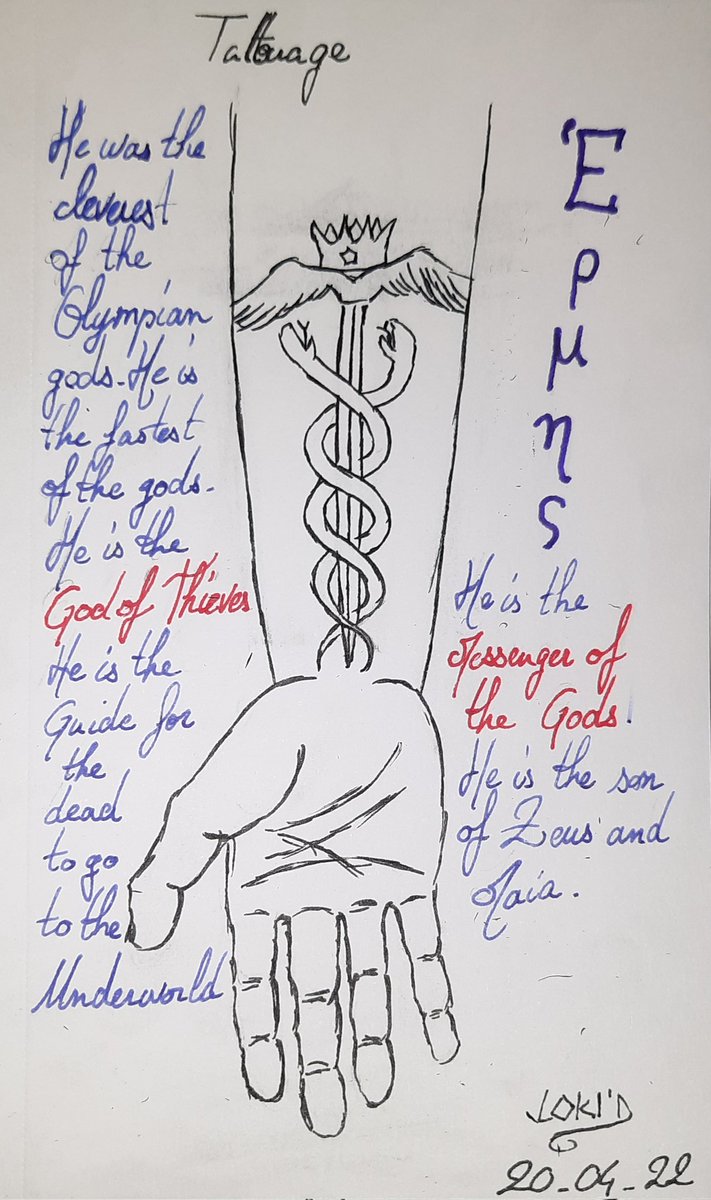 Tattouage
He was the
cleverest
of the
Olympian
gods. He is
the fastest
of the gods.
He is the
God of Thieves
He is the
Guide for
the
dead
to go
to the
Underworld
Ἑρμης
He is the
Messenger of
the Gods.
He is the son
of Zeus and
Maia.
LOKI'D
20-04-22